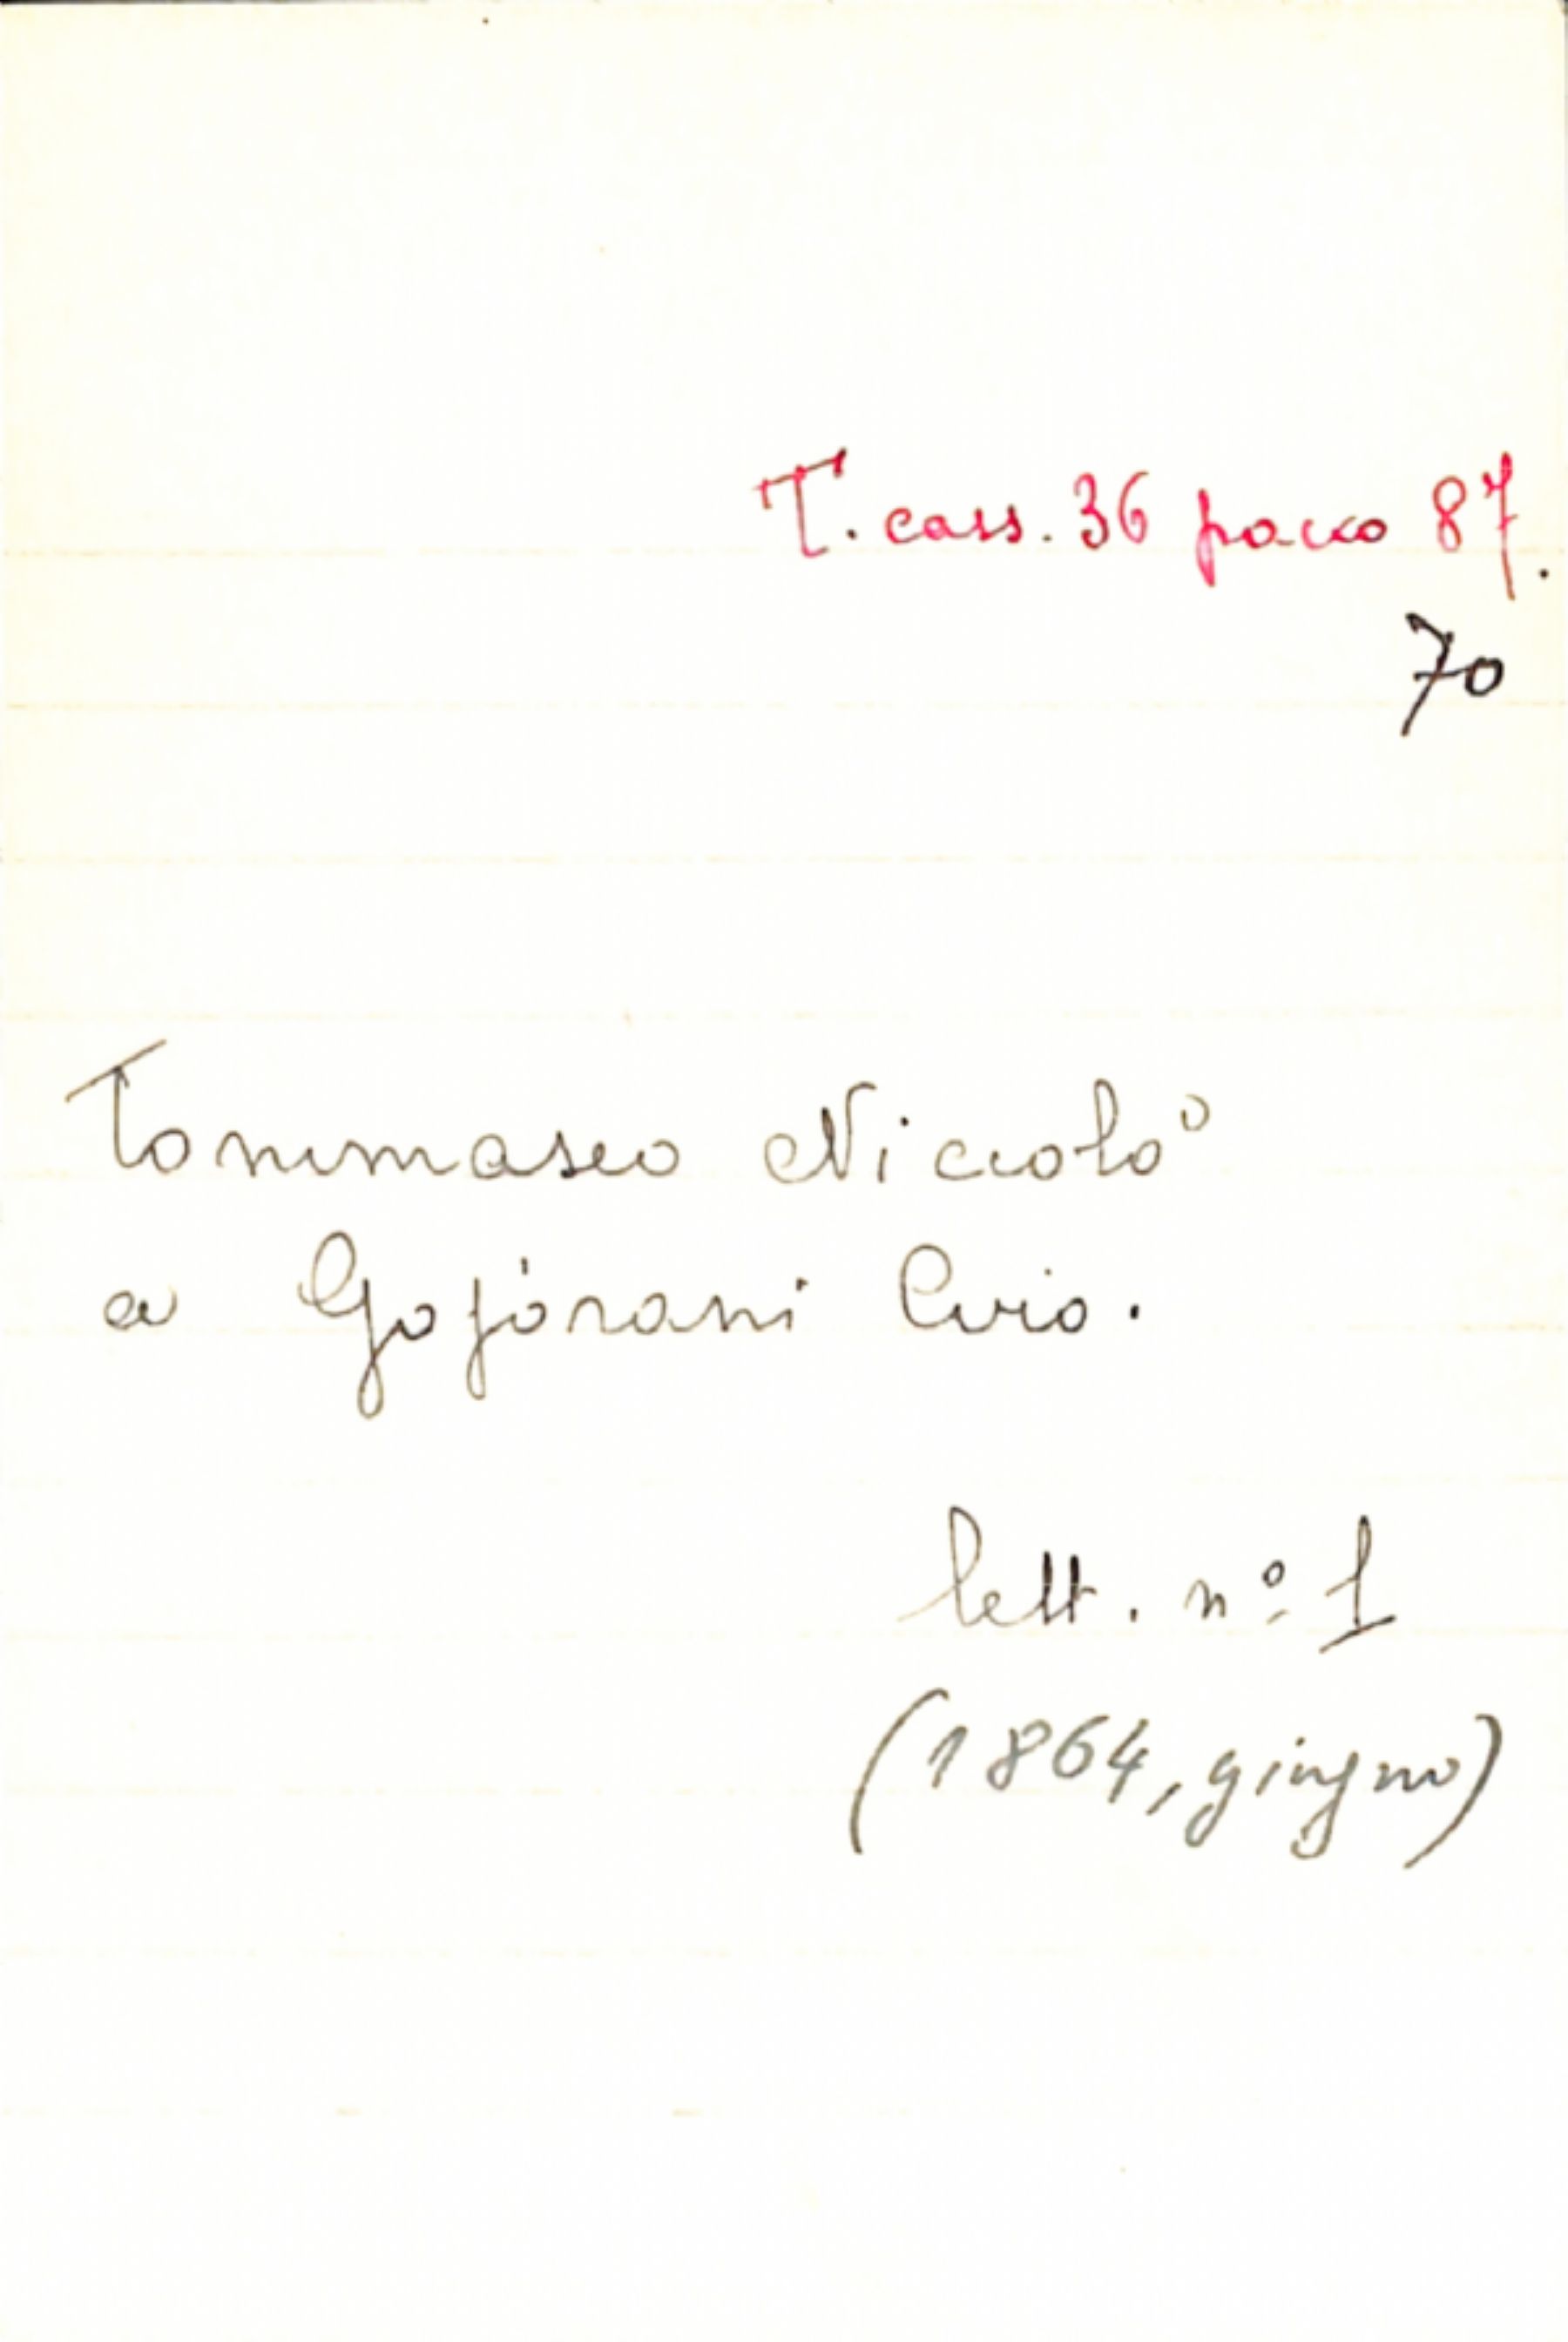 T. cass. 36 pacco 87.
70
Tommaseo Niccolò
a Gojorani Ciro.
lett. nº 1
(1864, giugno)